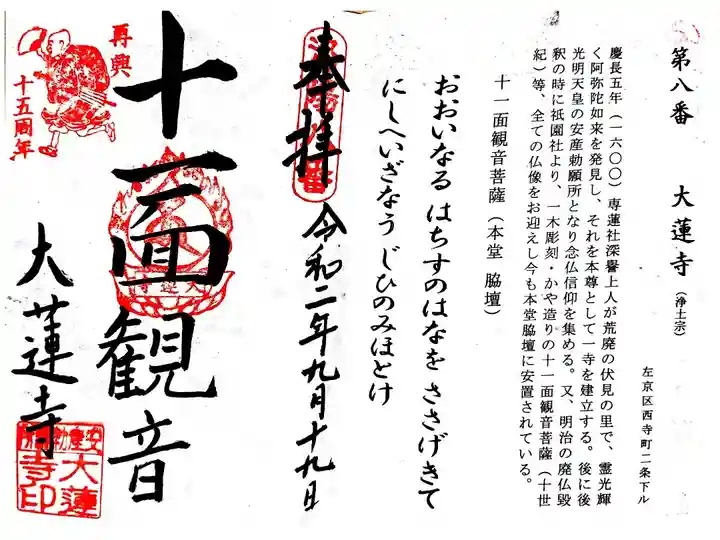 第八番 大蓮寺(浄土宗)
左京区西寺町二条下ル
慶長五年(一六〇〇)専蓮社深譽上人が荒廃の伏見の里で、霊光輝
く阿弥陀如来を発見し、それを本尊として一寺を建立する。後に後
光明天皇の安産勅願所となり念仏信仰を集める。又、明治の廃仏毀
釈の時に祇園社より、一木彫刻・かや造りの十一面観音菩薩(十世
紀)等、全ての仏像をお迎えし今も本堂脇壇に安置されている。
十一面観音菩薩(本堂 脇壇)
おおいなる はちすのはなを ささげきて
にしへいざなう じひのみほとけ
奉拝
令和二年九月十九日
十一面観音
大蓮寺
再興
十五周年
大蓮寺印